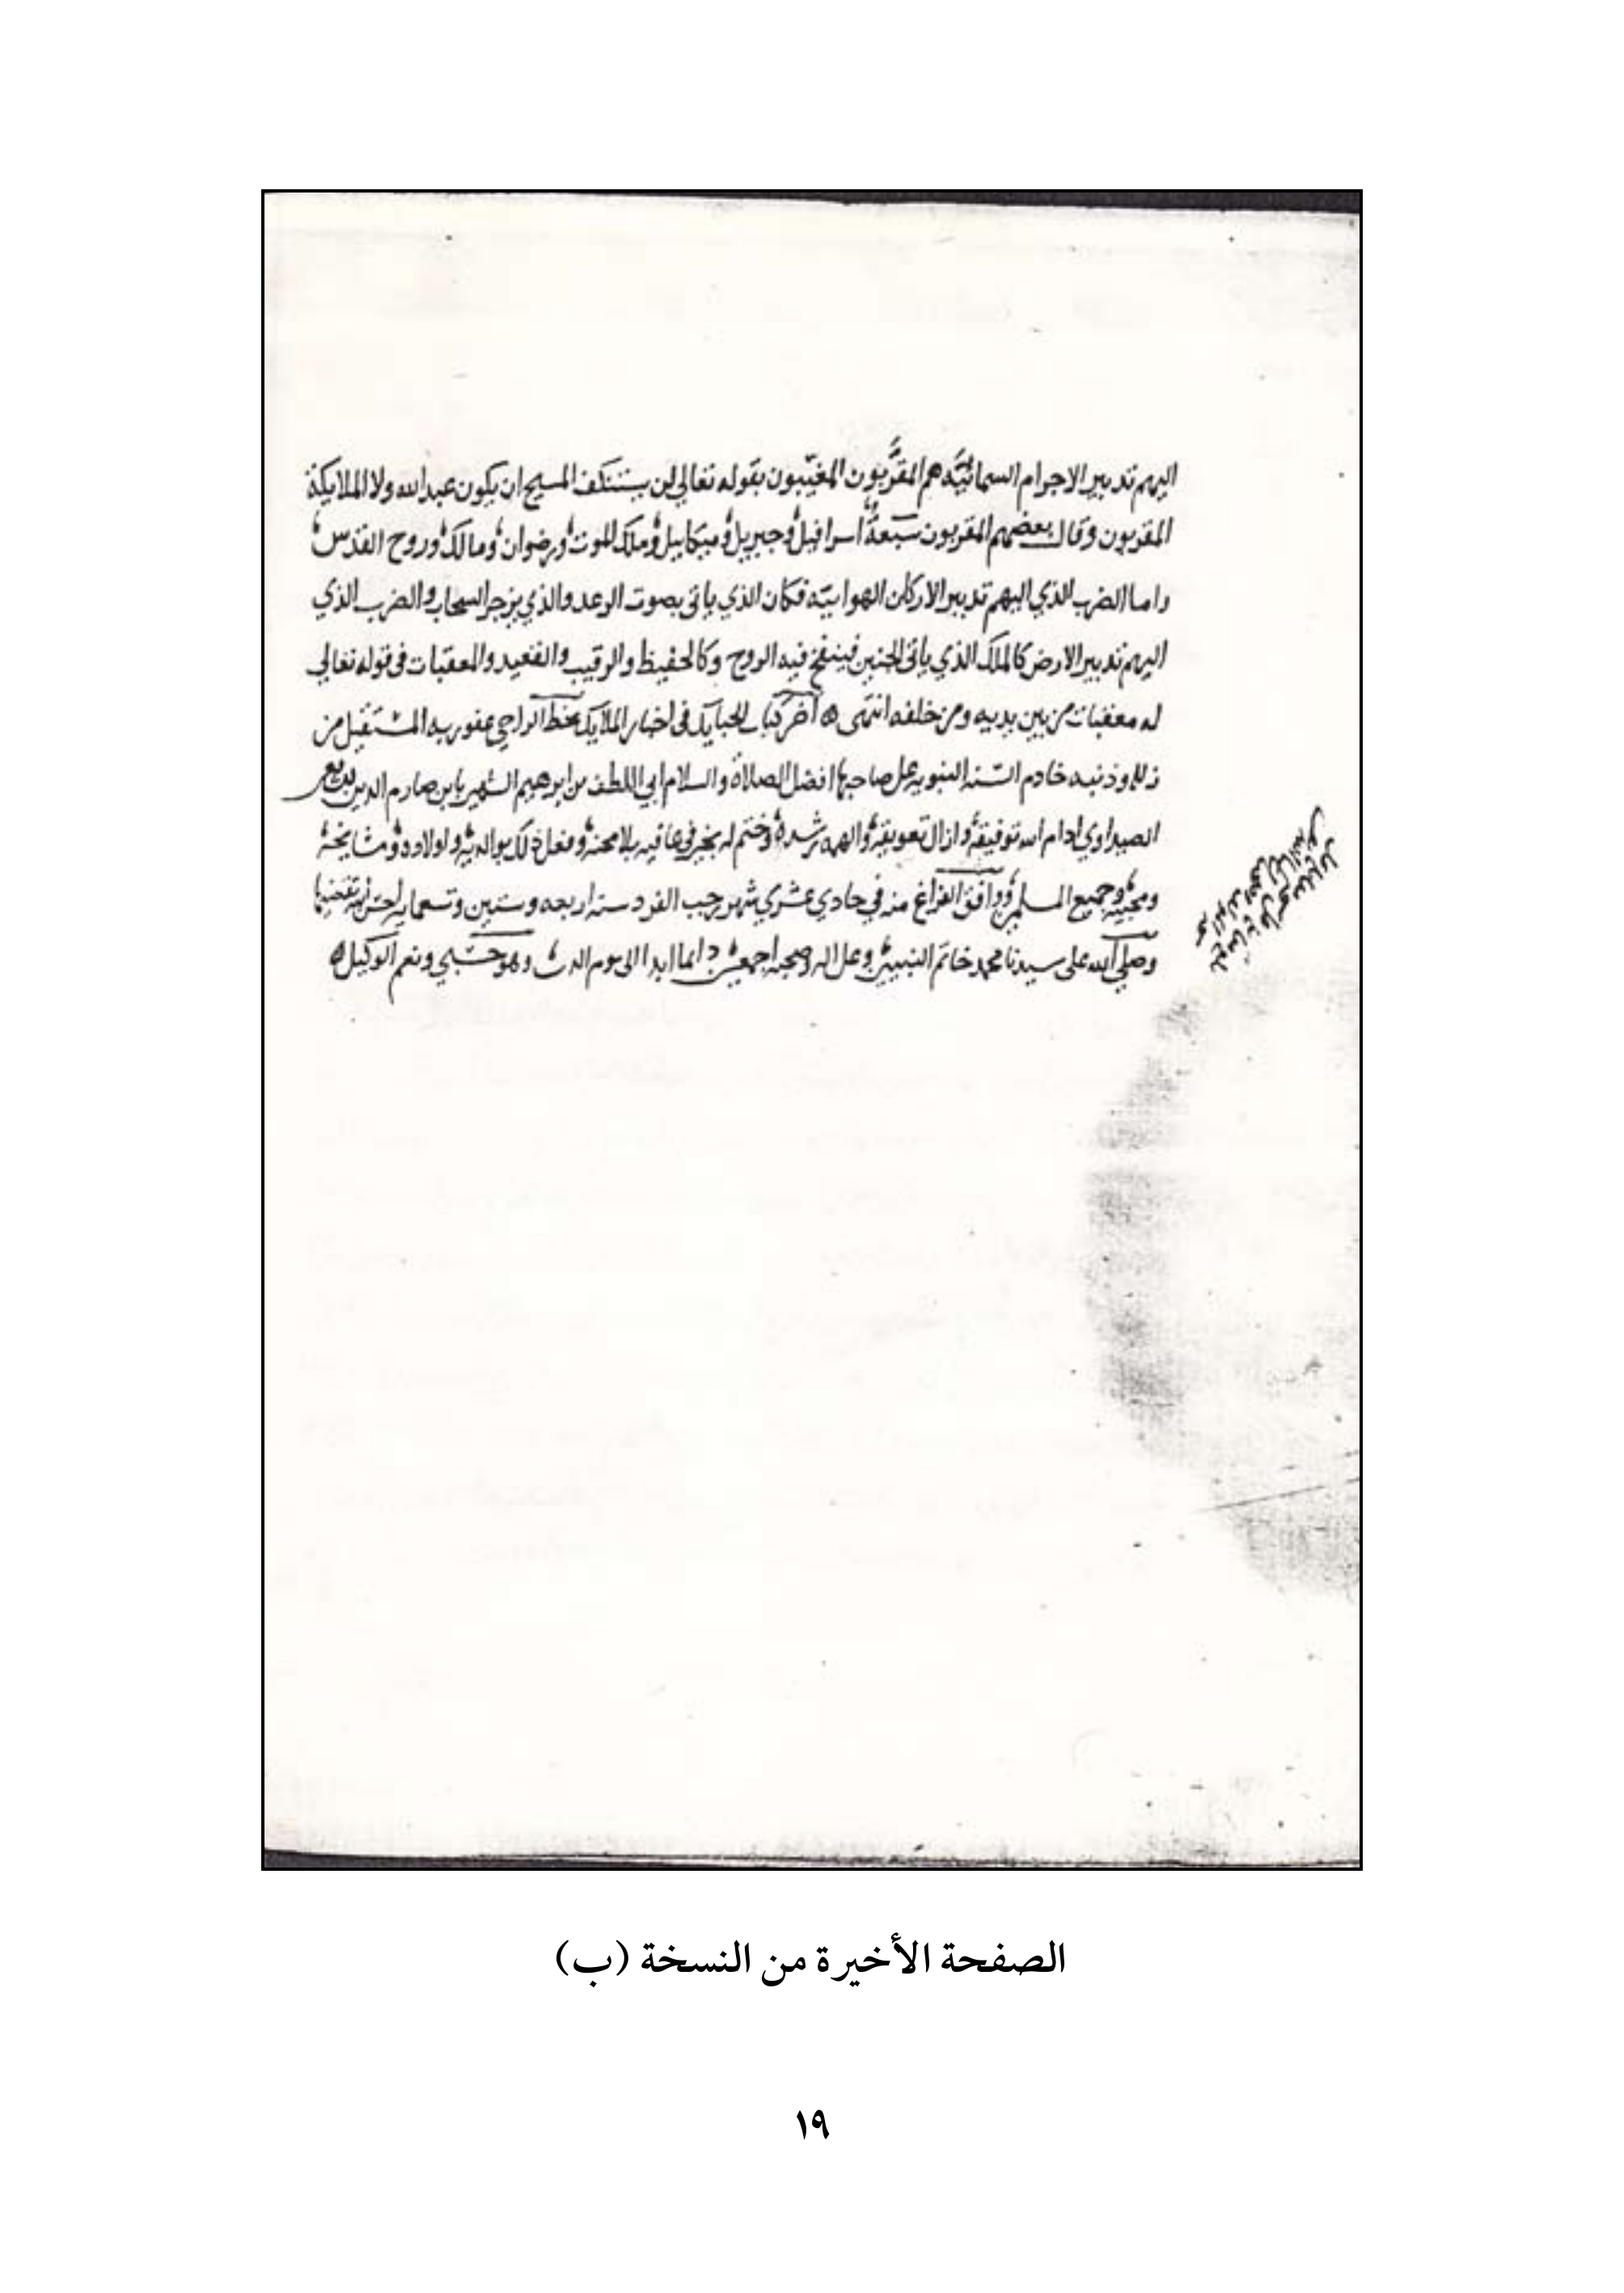 اليهم تدبير الاجرام السمائيَّة هم المقرَّبون المغيّبون بقوله تعالي لن يستنكف المسيح ان يكون عبد الله ولا الملايكة
المقربون وقال بعضهم المقربون سبعة اسرافيل وجبريل وميكاييل وملك الموت ورضوان ومالك وروح القدس
واما الضرب الذي اليهم تدبير الاركان الهوابيّه فكان الذي ياتى بصوت الرعد والذي يزجر السحاب والضرب الذي
اليهم تدبير الارض كالملك الذي ياتى الجنين فينفخ فيه الروح وكالحفيظ والرقيب والقعيد والمعقبات في قوله تعالي
له معقبات من بين يديه ومن خلفه انتهى ه آخر كتاب الحبايك في اخبار الملايك بخط الراجي عفو ربه المستقيل من
زلله وذنبه خادم السّنه النبويه على صاحبها افضل الصلاة والسلام ابي اللطف بن ابرهيم الشهير بابن صارم الدين
الصيداوي ادام الله توفيقه وازال تعويقه والهمه رشده وختم له بخير في عافيه بلا محنه وفعل ذلك بوالديه واولاده ومشايخه
ومحبيه وجميع المسلمين ووافق الفراغ منه في حادي عشري شهر رجب الفرد سنه اربعه وستين وتسعمايه
وصلي الله على سيدنا محمد خاتم النبيين وعلى اله وصحبه اجمعين دايما ابدا الى يوم الدين وهو حسبي ونعم الوكيل ه
الصفحة الأخيرة من النسخة (ب)
١٩